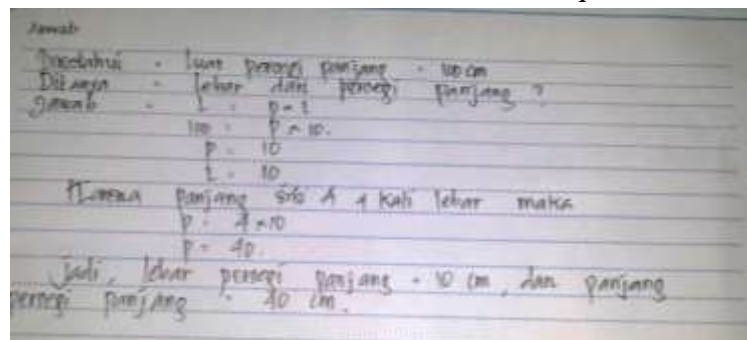 Jawab:
Diketahui : luas persegi panjang = 100 cm
Ditanya : lebar dari persegi panjang ?
Jawab : L = p × l
100 = p × 10.
p = 10
l = 10
Karena panjang sisi A 4 kali lebar maka
p = 4 × 10
p = 40.
Jadi, lebar persegi panjang = 10 cm, dan panjang
persegi panjang = 40 cm.